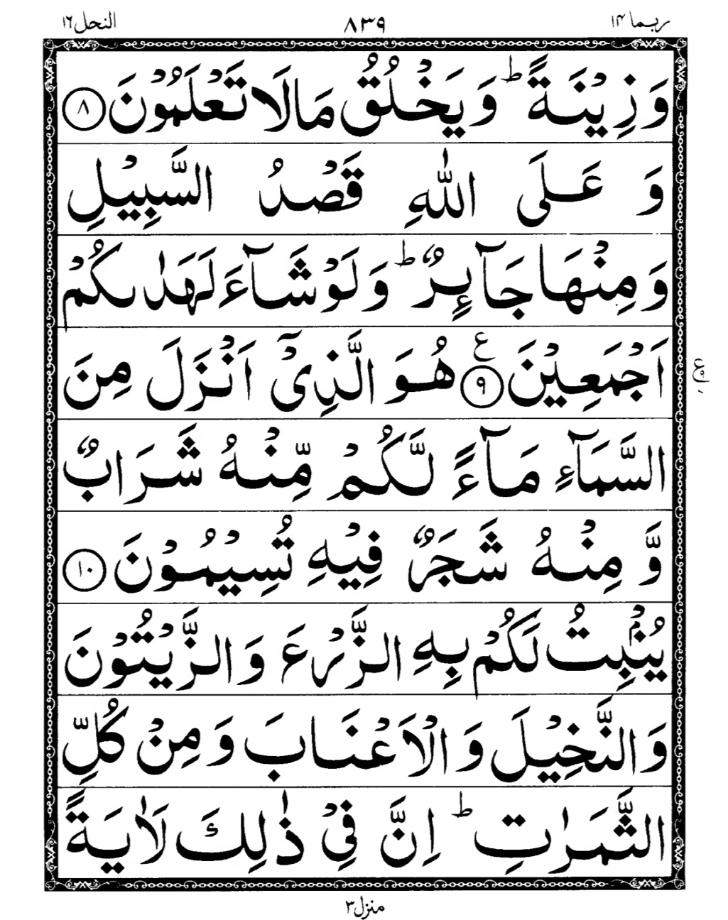 ربما ١٤ ٨٣٩ النحل ١٦
وَزِيْنَةً ؕ وَيَخْلُقُ مَالَا تَعْلَمُوْنَ ۝۸
وَ عَلَى اللّٰهِ قَصْدُ السَّبِيْلِ
وَمِنْهَا جَآئِرٌ ؕ وَلَوْ شَآءَ لَهَدٰىكُمْ
اَجْمَعِيْنَ ۝۹ ع هُوَ الَّذِيْٓ اَنْزَلَ مِنَ
السَّمَآءِ مَآءً لَّكُمْ مِّنْهُ شَرَابٌ
وَّ مِنْهُ شَجَرٌ فِيْهِ تُسِيْمُوْنَ ۝۱۰
يُنْۢبِتُ لَكُمْ بِهِ الزَّرْعَ وَالزَّيْتُوْنَ
وَالنَّخِيْلَ وَالْاَعْنَابَ وَمِنْ كُلِّ
الثَّمَرٰتِ ؕ اِنَّ فِيْ ذٰلِكَ لَاٰيَةً
منزل ٣